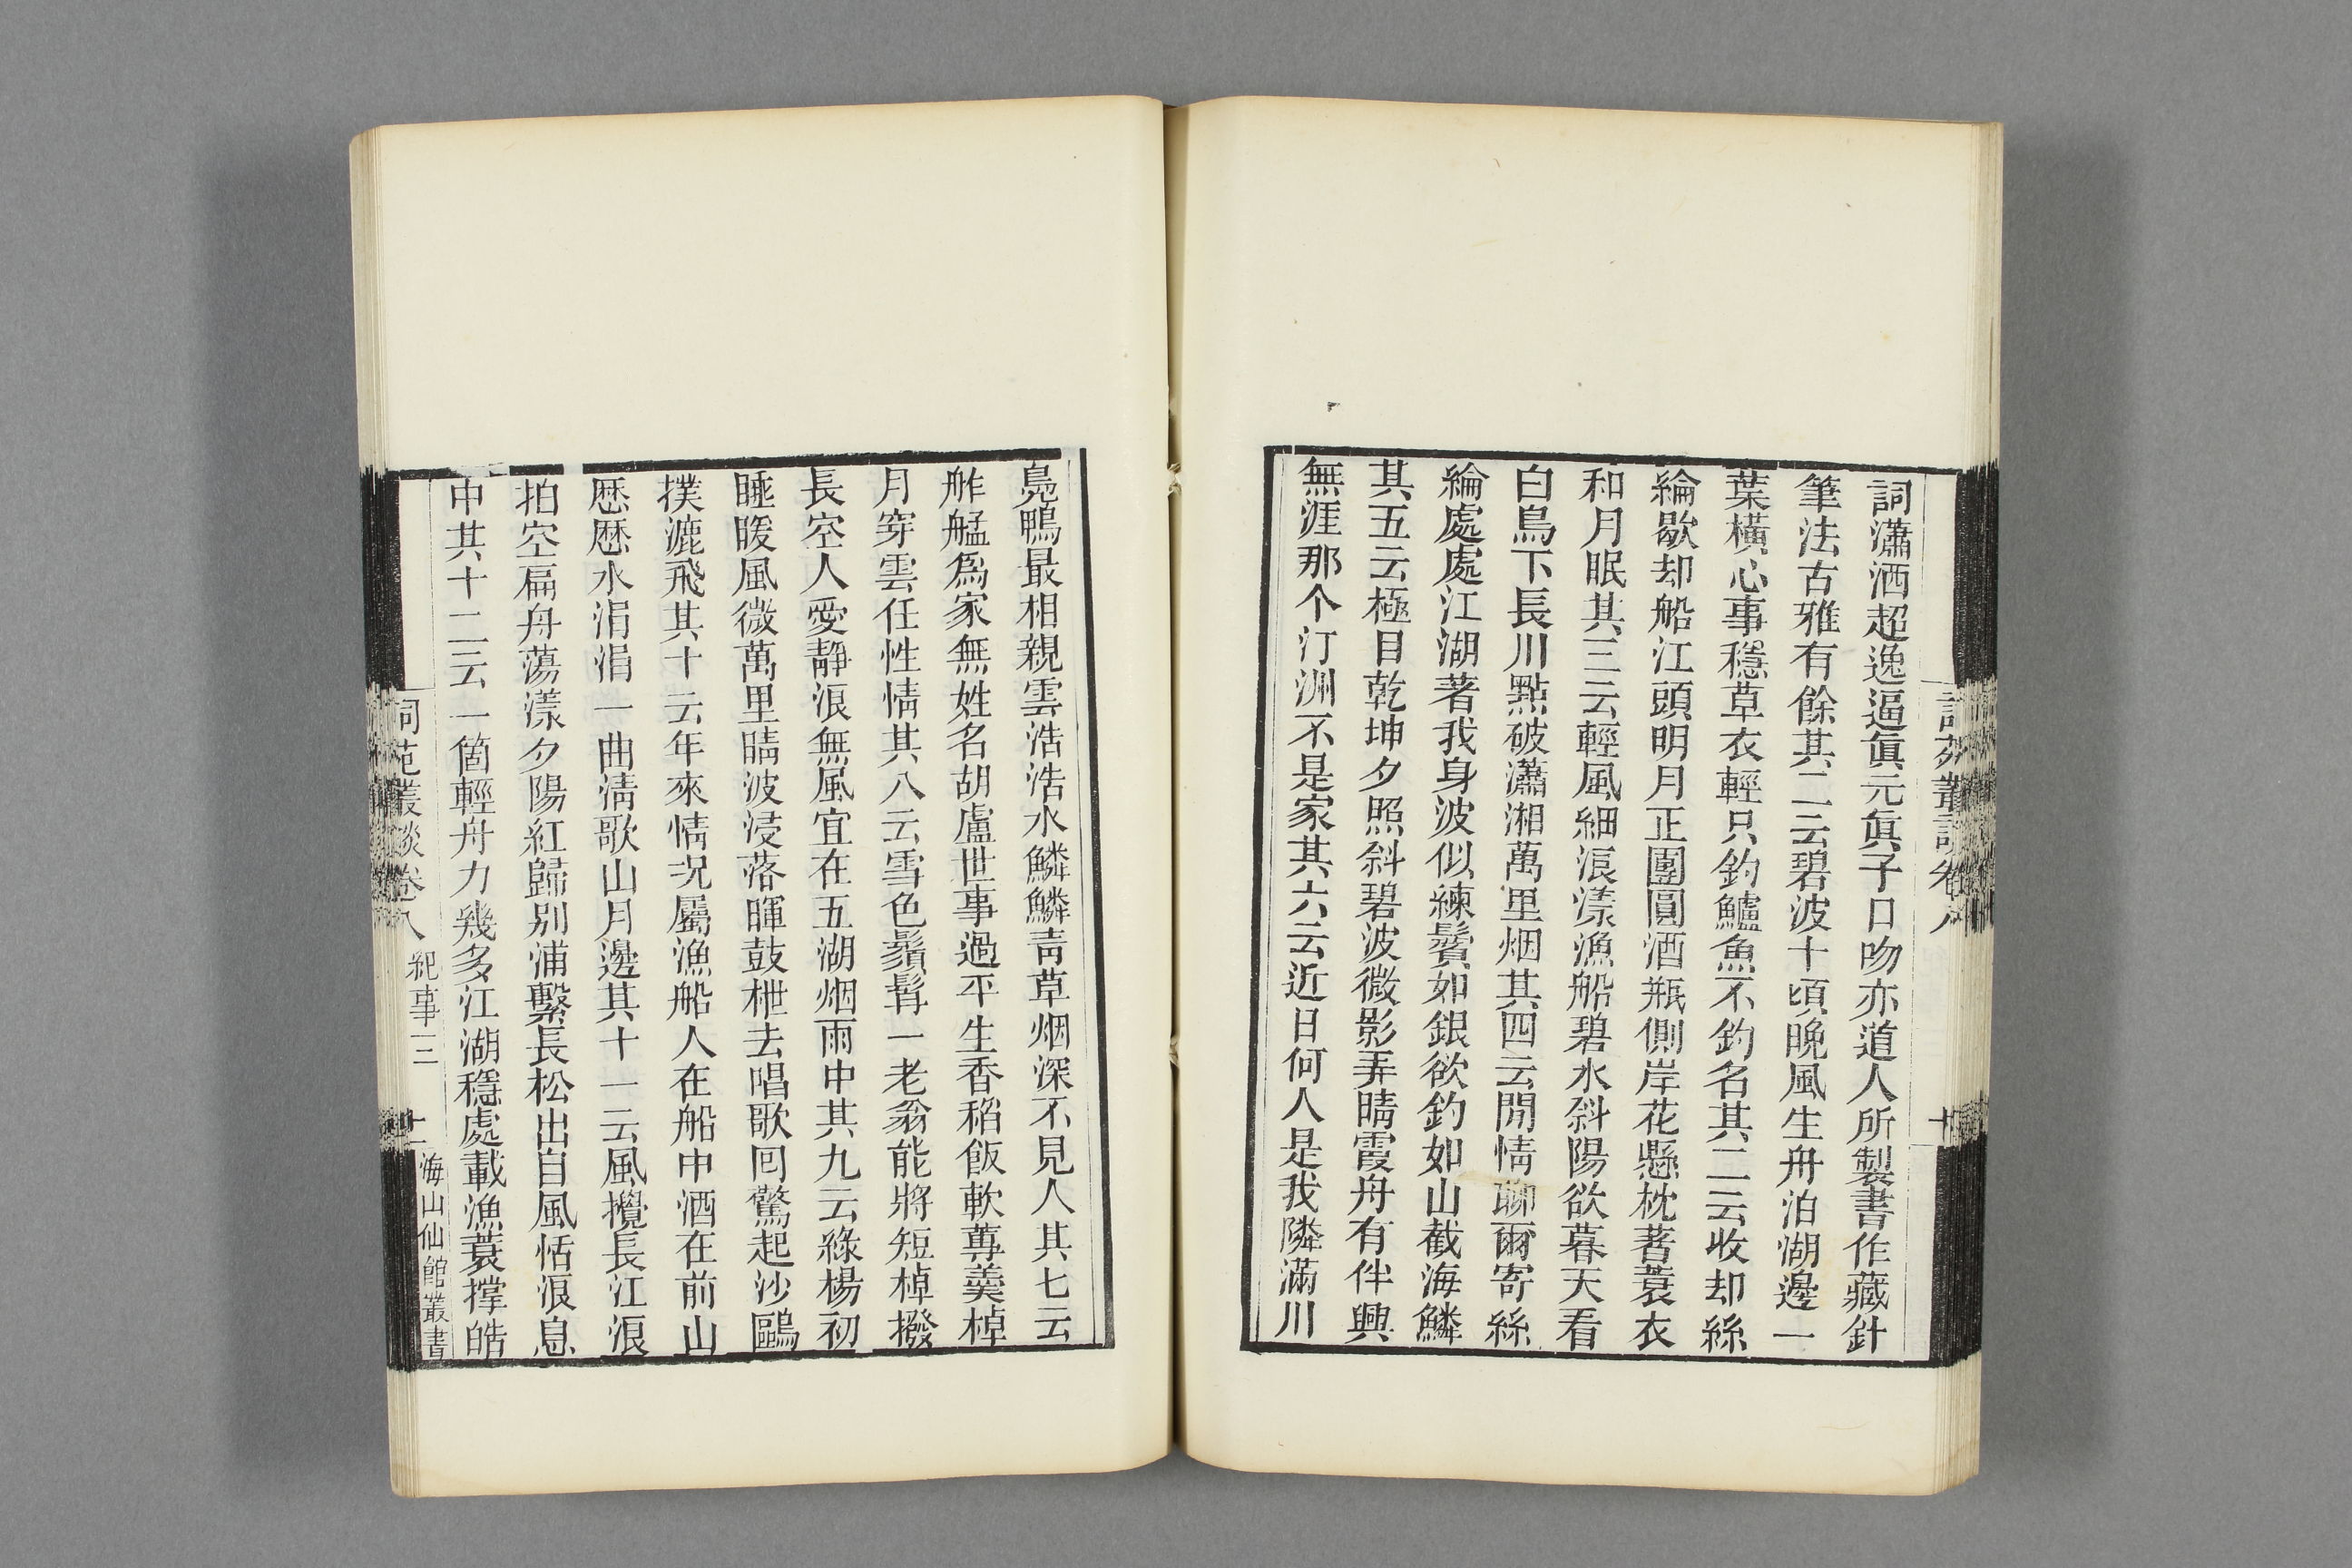 詞瀟洒超逸逼眞元眞子口吻亦道人所製書作藏針
筆法古雅有餘其二云碧波十頃晩風生舟泊湖邊一
葉橫心事穩草衣輕只釣鱸魚不釣名其二云收却絲
綸歇却船江頭明月正團圓酒瓶側岸花懸枕著蓑衣
和月眠其三云輕風細浪漾漁船碧水斜陽欲暮天看
白鳥下長川點破瀟湘萬里烟其四云閒情聊爾寄絲
綸處處江湖著我身波似練鬢如銀欲釣如山截海鱗
其五云極目乾坤夕照斜碧波微影弄晴霞舟有伴興
無涯那个汀洲不是家其六云近日何人是我隣滿川
鳧鴨最相親雲浩浩水鱗鱗靑草烟深不見人其七云
舴艋爲家無姓名胡盧世事過平生香稻飯軟蓴羹棹
月穿雲任性情其八云雪色鬚髯一老翁能將短棹撥
長空人愛靜浪無風宜在五湖烟雨中其九云綠楊初
睡暖風微萬里晴波浸落暉鼓枻去唱歌囘驚起沙鷗
撲漉飛其十云年來情况屬漁船人在船中酒在前山
歷歷水涓涓一曲淸歌山月邊其十一云風攪長江浪
拍空扁舟蕩漾夕陽紅歸别浦繫長松出自風恬浪息
中其十二云一箇輕舟力幾多江湖穩處載漁蓑撑皓
詞苑叢談卷八 紀事三 十一 海山仙館叢書